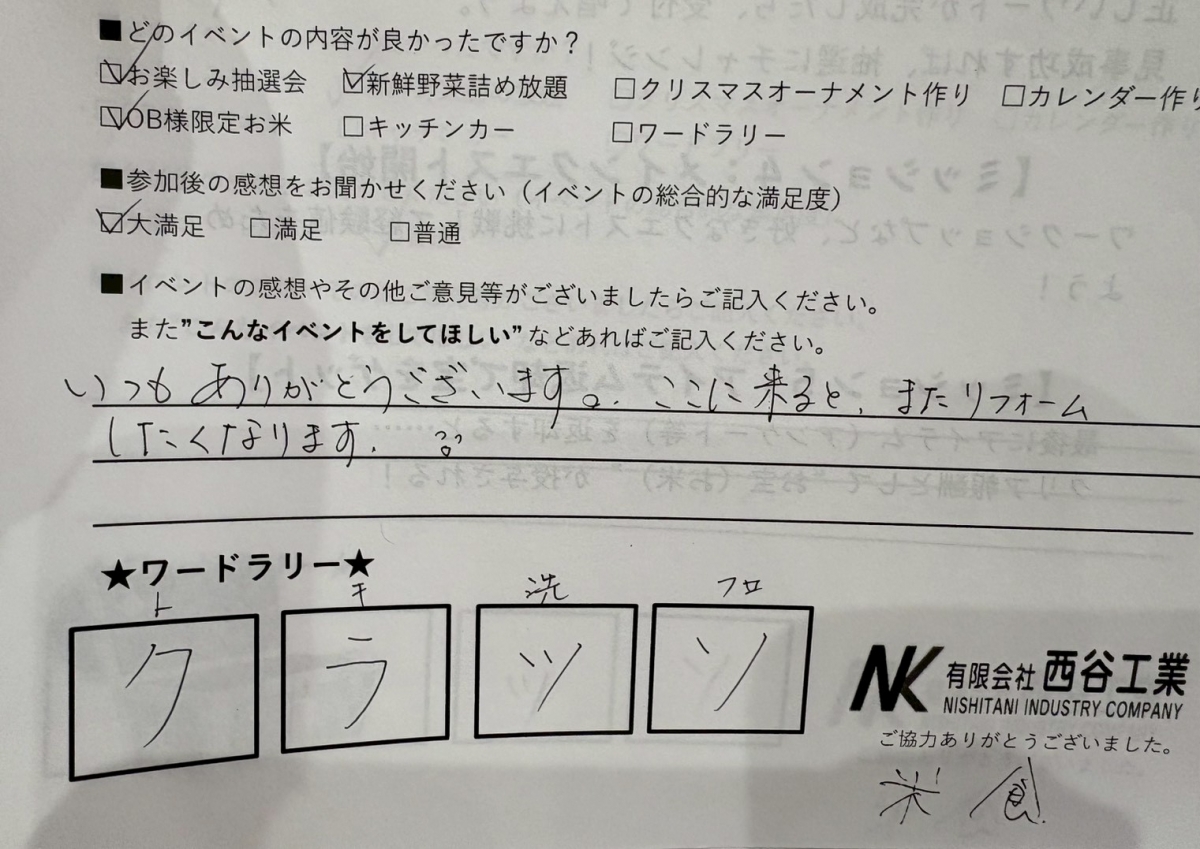 ■どのイベントの内容が良かったですか？
☑お楽しみ抽選会 ☑新鮮野菜詰め放題 □クリスマスオーナメント作り □カレンダー作り
☑OB様限定お米 □キッチンカー □ワードラリー
■参加後の感想をお聞かせください（イベントの総合的な満足度）
☑大満足 □満足 □普通
■イベントの感想やその他ご意見等がございましたらご記入ください。
また”こんなイベントをしてほしい”などあればご記入ください。
いつもありがとうございます。ここに来ると、またリフォーム
したくなります。
★ワードラリー★
ト キ 洗 フロ
ク ラ ッ ソ
NK 有限会社 西谷工業
NISHITANI INDUSTRY COMPANY
ご協力ありがとうございました。
米 食